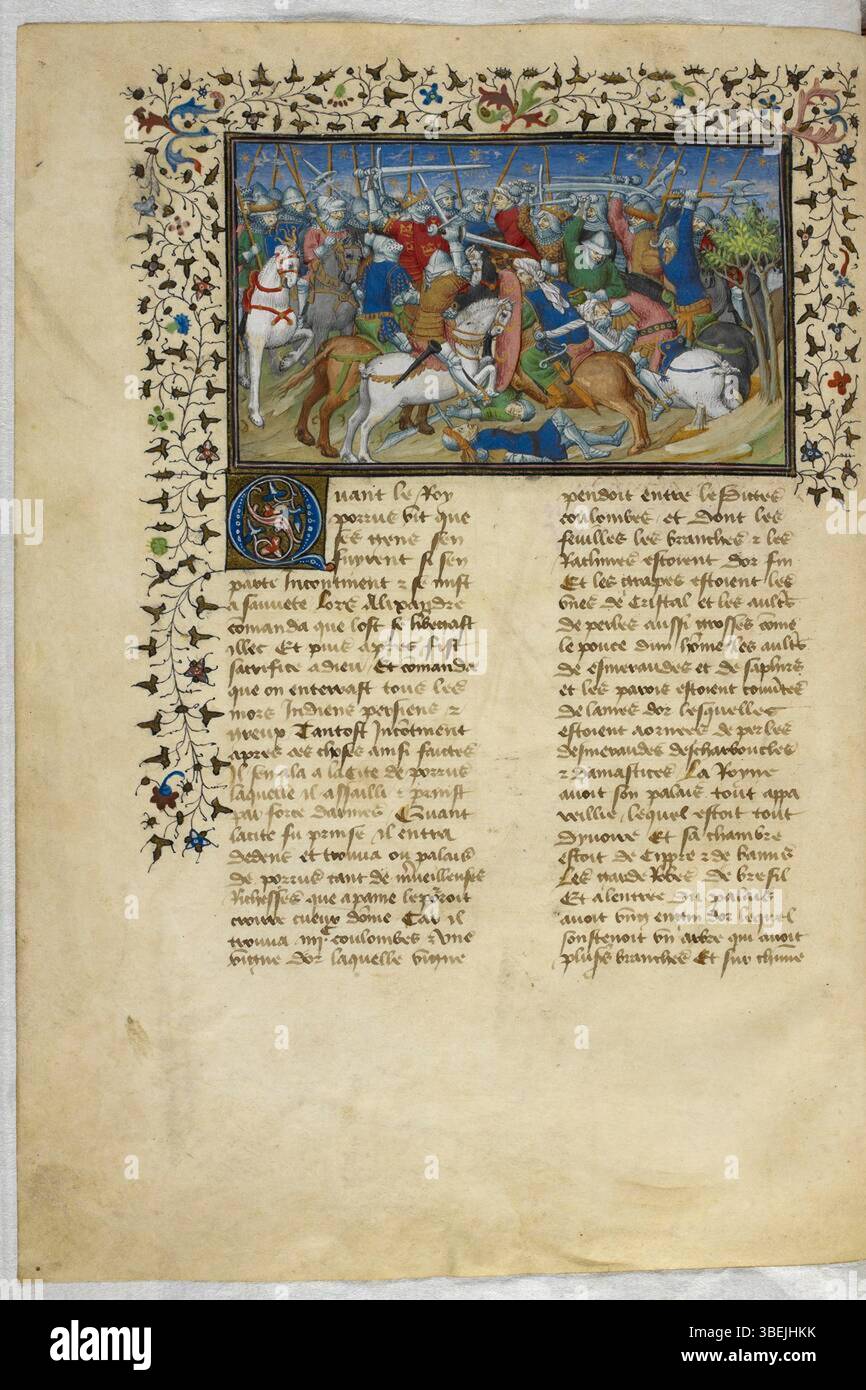 Quant le Roy
porrus vit que
ses gens sen
fuyrent si sen
party Incontinent & se mist
a sauuete Lors Alixandre
comanda que lost se hbergast
illec Et puis apres fist
sacrifice a dieu Et comanda
que on enterrast tous les
mors Indiens persiens &
greux Tantost Incontinent
apres ces choses ainsi faictes
Il sen ala a la cite de porrus
laquelle il assailli & prinst
par force darmes Quant
la cite fu prinse il entra
dedens et trouua ou palais
de porrus tant de mueilleuses
Richesses que a paine le poroit
croire cueur dome Car il
trouua iiijc coulombes & vne
vigne dor laquelle vigne
pendoit entre lesdictes
coulombes et dont les
feuilles les branches & les
Rachines estoient dor fin
Et les grapes estoient les
vnes de cristal et les aultres
de perles aussi grosses come
le pouce dun home les aultres
de esmeraudes et de saphirs
et les parois estoient couuertes
de lames dor lesquelles
estoient aornees de perles
desmeraudes descharboucles
& damastices La Royne
auoit son palais tout appa
reillie lequel estoit tout
dyuoire Et sa chambre
estoit de cippre & de bannis
Les garde Robes de bresil
Et a lentree du palais
auoit vng engin dor lequel
soustenoit vn arbre qui auoit
plusrs branches Et sur chune
a alamy
alamy
Image ID: 3BEJHKK
www.alamy.com